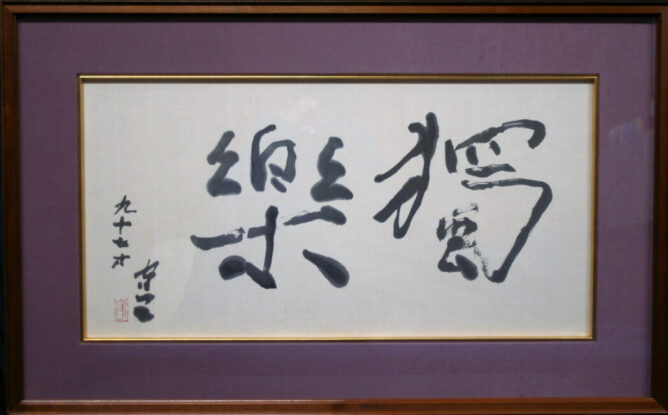 獨樂
九十七才